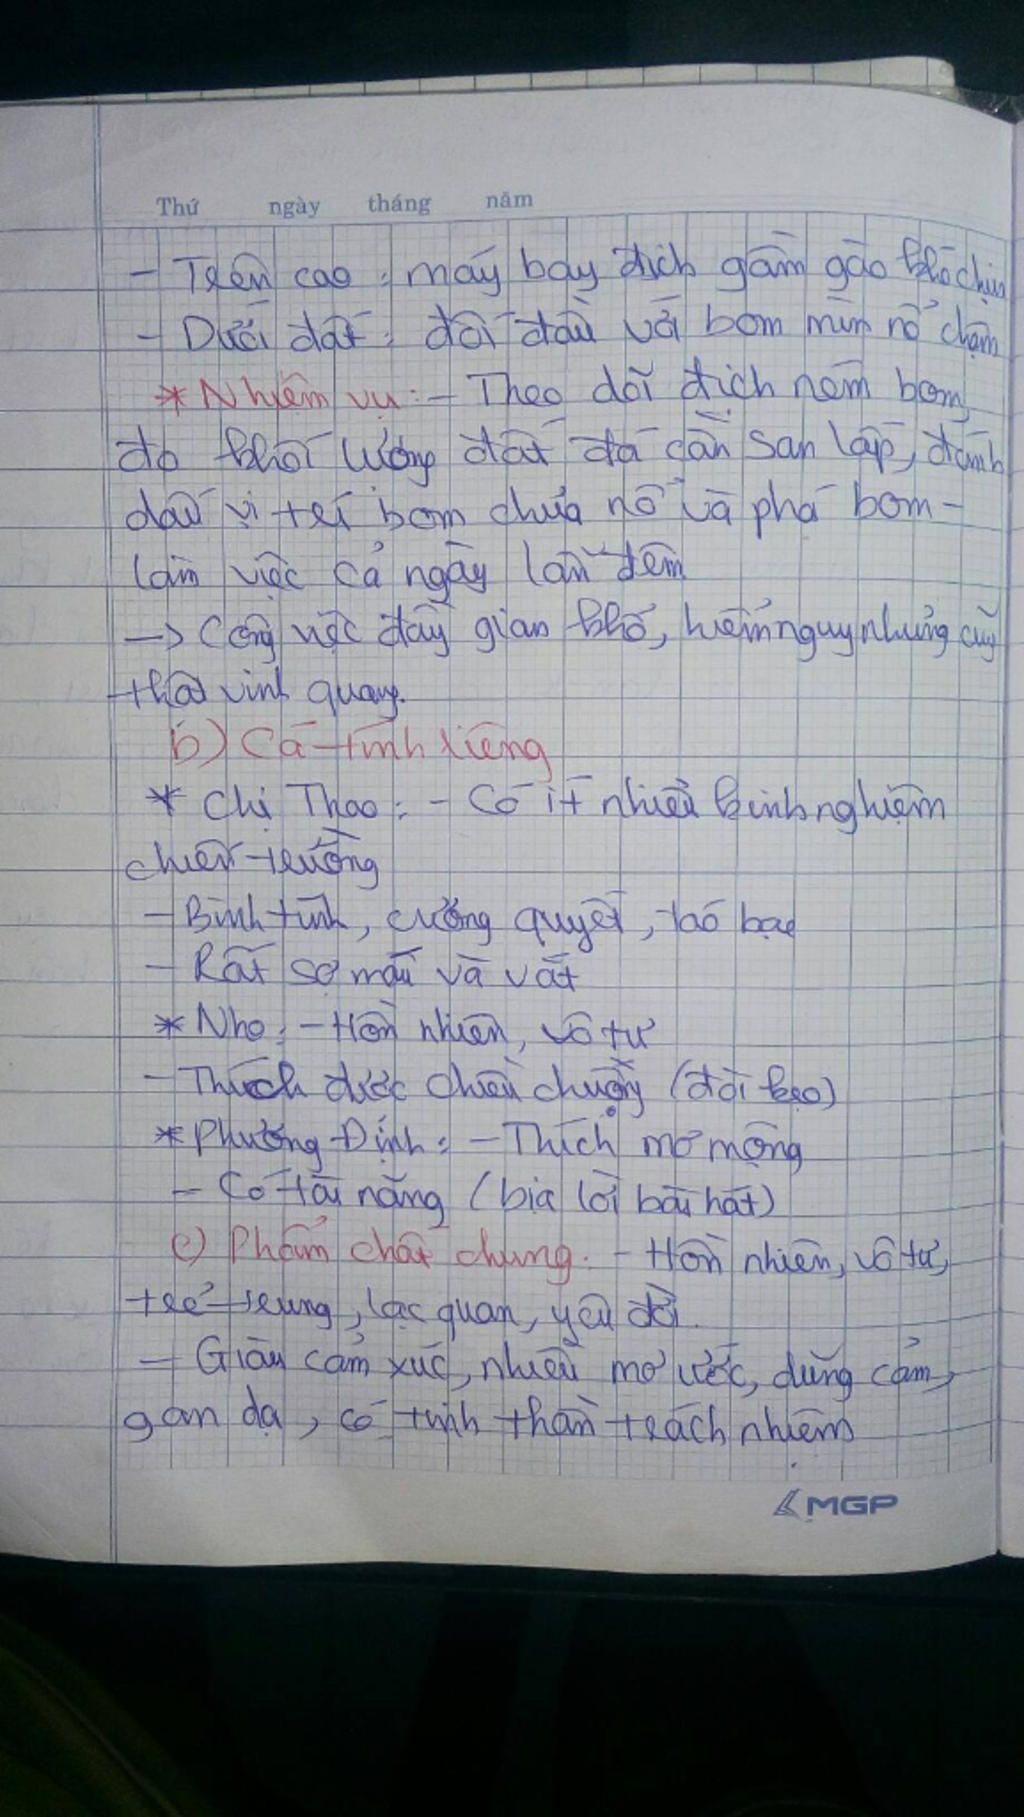 Thứ ngày tháng năm
- Trên cao: máy bay địch gầm gào khó chịu
- Dưới đất: đối đầu với bom mìn nổ chậm
* Nhiệm vụ: - Theo dõi địch ném bom,
đo khối lượng đất đá cần san lấp, đánh
dấu vị trí bom chưa nổ và phá bom -
làm việc cả ngày lẫn đêm
-> Công việc đầy gian khổ, hiểm nguy nhưng cũng
thật vinh quang.
b) Cá tính riêng
* Chị Thao: - Có ít nhiều kinh nghiệm
chiến trường
- Bình tĩnh, cương quyết, táo bạo
- Rất sợ máu và vắt
* Nho: - Hồn nhiên, vô tư
- Thích được chiều chuộng (đòi kẹo)
* Phương Định: - Thích mơ mộng
- Có tài năng (bịa lời bài hát)
c) Phẩm chất chung. - Hồn nhiên, vô tư,
trẻ trung, lạc quan, yêu đời.
- Giàu cảm xúc, nhiều mơ ước, dũng cảm,
gan dạ, có tinh thần trách nhiệm
MGP